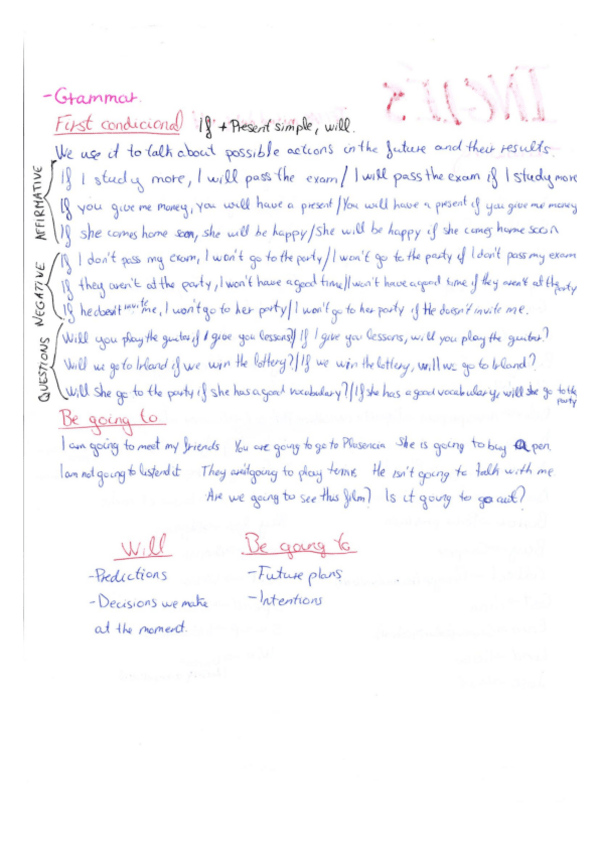 -Grammar.
First condicional If + Present simple, will.
We use it to talk about possible actions in the future and their results.
AFFIRMATIVE
If I study more, I will pass the exam/I will pass the exam if I study more
If you give me money, you will have a present/You will have a present if you give me money
If she comes home soon, she will be happy/She will be happy if she comes home soon
NEGATIVE
If I don't pass my exam, I won't go to the party/I won't go to the party if I don't pass my exam
If they aren't at the party, I won't have a good time/I won't have a good time if they aren't at the party
If he doesn't invite me, I won't go to her party/I won't go to her party if He doesn't invite me.
QUESTIONS
Will you play the guitar if I give you lessons?/If I give you lessons, will you play the guitar?
Will we go to Irland if we win the lottery?/If we win the lottery, will we go to Irland?
Will she go to the party if she has a good vocabulary?/If she has a good vocabulary, will she go to the party
Be going to
I am going to meet my friends You are going to go to Plasencia She is going to buy a pen
I am not going to They aren't going to play tennis He isn't going to talk with me
Are we going to see this film? Is it going to go out?
Will Be going to
-Predictions -Future plans
-Decisions we make -Intentions
at the moment.
INGLÉS